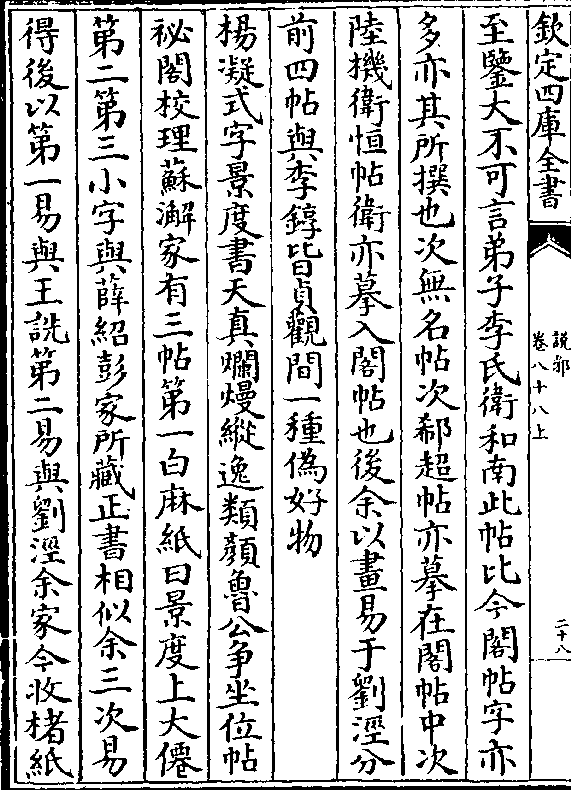 欽定四庫全書
說郛
卷八十八上
二十八
至鑒大不可言弟子李氏衛和南此帖比今閣帖字亦
多亦其所撰也次無名帖次郗超帖亦摹在閣帖中次
陸機衛恒帖衛亦摹入閣帖也後余以畫易于劉涇分
前四帖與李錞皆貞觀間一種偽好物
楊凝式字景度書天真爛熳縱逸類顔魯公争坐位帖
祕閣校理蘇澥家有三帖第一白麻紙曰景度上大僊
第二第三小字與薛紹彭家所藏正書相似余三次易
得後以第一易與王詵第二易與劉涇余家今收楮紙